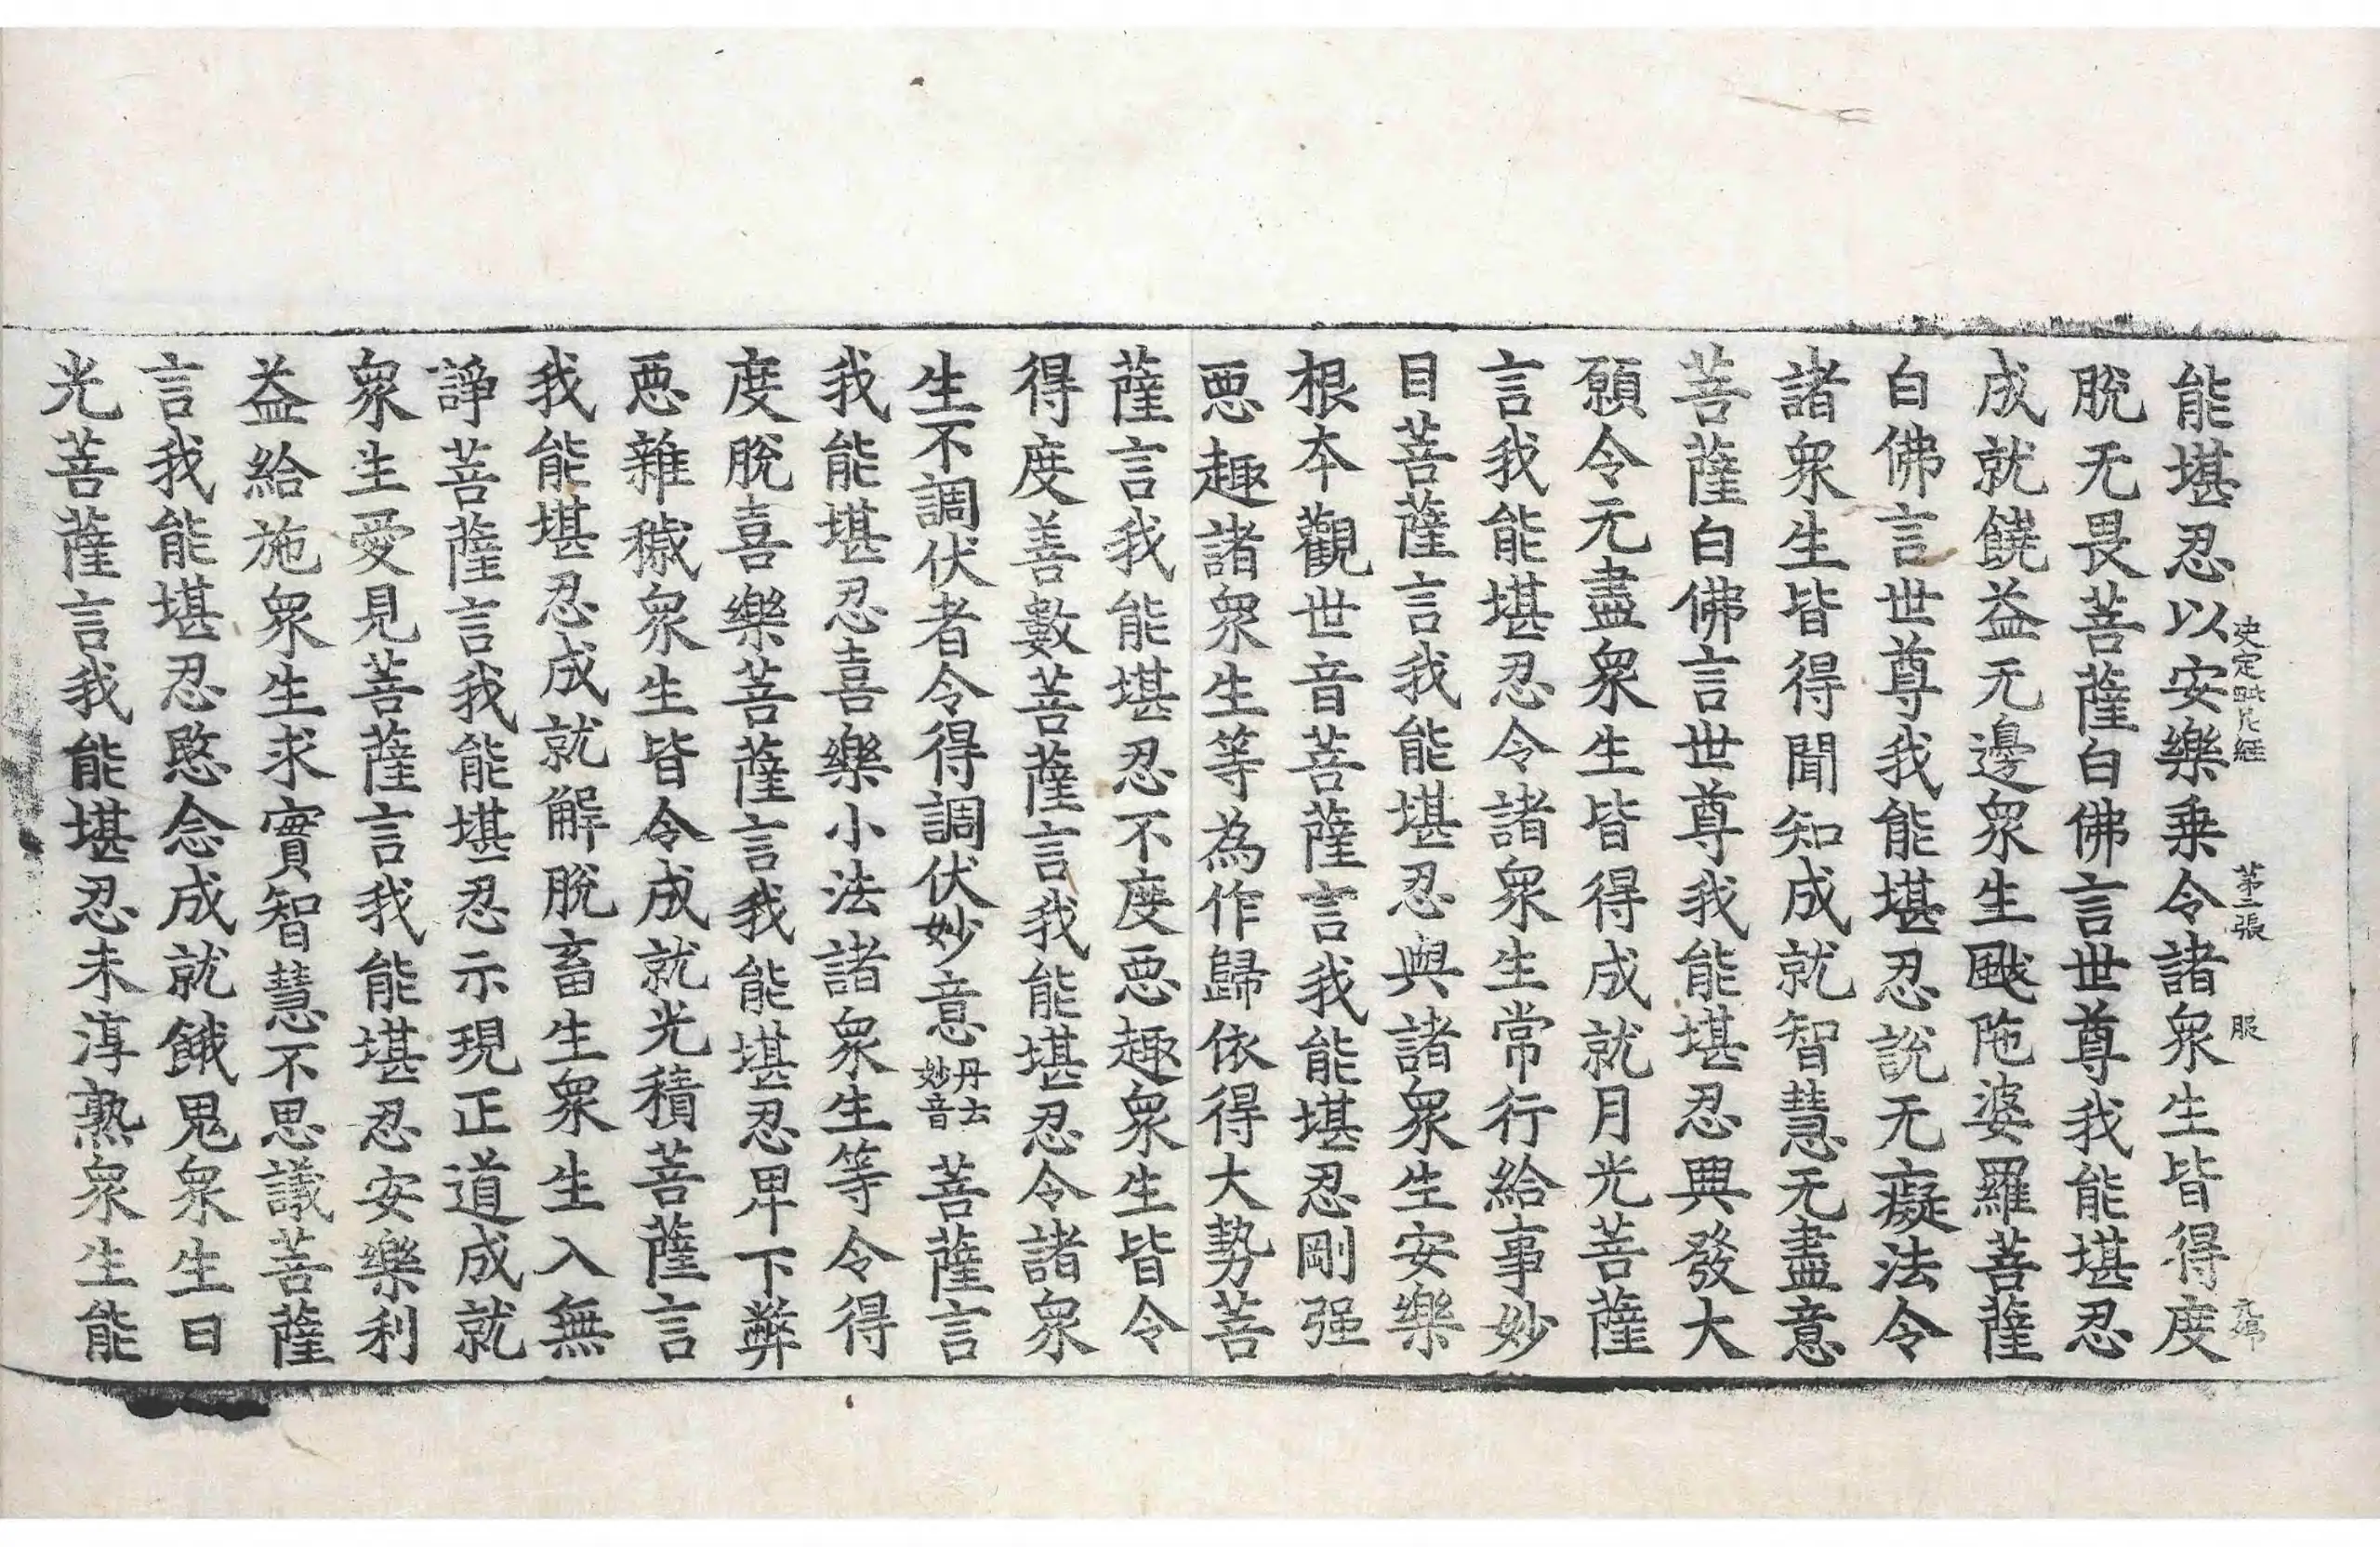 能堪忍以安樂乗令諸衆生皆得度
决定毗尼經 第二張 服
脫无畏菩薩白佛言世尊我能堪忍
成就饒益无邊衆生颰陁婆羅菩薩
白佛言世尊我能堪忍說无癡法令
諸衆生皆得聞知成就智慧无盡意
菩薩白佛言世尊我能堪忍興發大
願令无盡衆生皆得成就月光菩薩
言我能堪忍令諸衆生常行給事妙
目菩薩言我能堪忍與諸衆生安樂
根本觀世音菩薩言我能堪忍剛强
惡趣諸衆生等為作歸依得大勢菩
薩言我能堪忍不度惡趣衆生皆令
得度善數菩薩言我能堪忍令諸衆
生不調伏者令得調伏妙意丹云妙音菩薩言
我能堪忍喜樂小法諸衆生等令得
度脫喜樂菩薩言我能堪忍卑下弊
惡雜穢衆生皆令成就光積菩薩言
我能堪忍成就解脫畜生衆生入無
諍菩薩言我能堪忍示現正道成就
衆生愛見菩薩言我能堪忍安樂利
益給施衆生求實智慧不思議菩薩
言我能堪忍愍念成就餓鬼衆生日
光菩薩言我能堪忍未淳熟衆生能